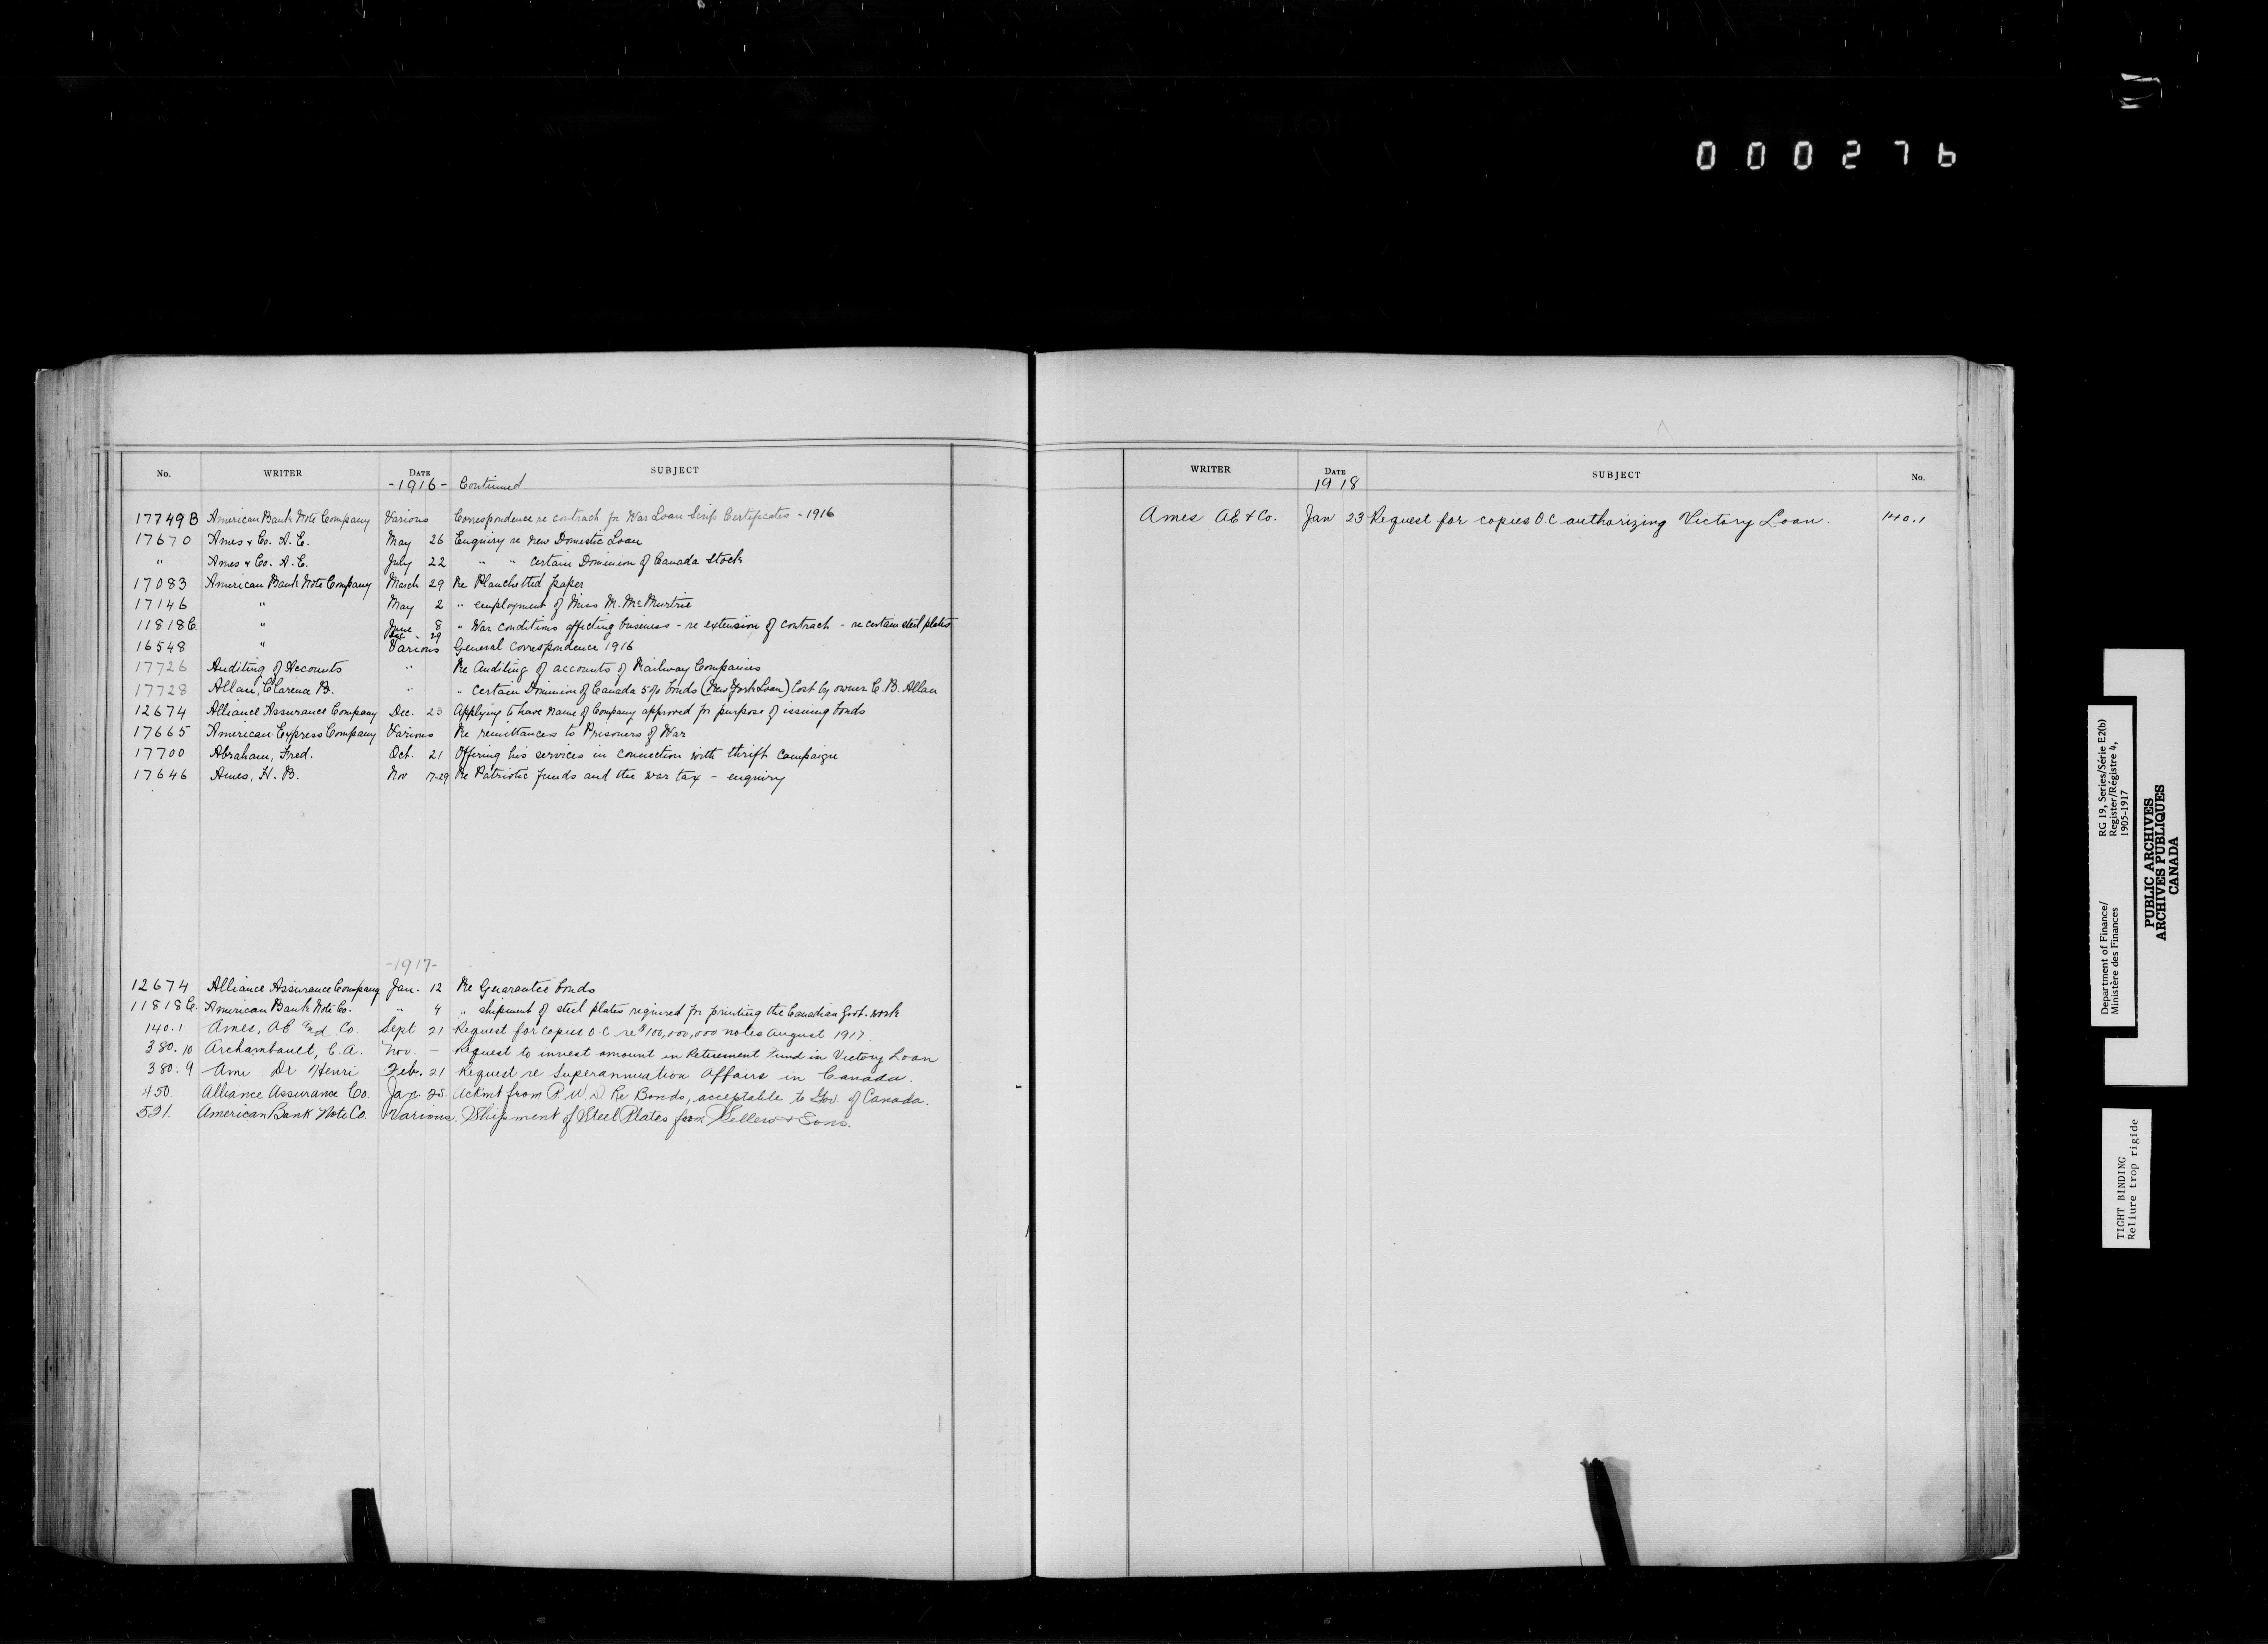 000276
No. WRITER DATE SUBJECT
-1916- Continued
17749B American Bank Note Company Various Correspondence re contract for War Loan Scrip Certificates - 1916
17670 Ames & Co. A. E. May 26 Enquiry re New Domestic Loan
" Ames & Co. A. E. July 22 " " certain Dominion of Canada Stock
17083 American Bank Note Company March 29 Re Planchetted paper
17146 " May 2 " employment of Miss M. McMurtrie
11818C. " June 8 " War conditions affecting business - re extension of contract - re certain steel plates
" 29
16548 " Various General correspondence 1916
17726 Auditing of Accounts " Re Auditing of accounts of Railway Companies
17728 Allan, Clarence B. " " certain Dominion of Canada 5% bonds (New York Loan) lost by owner C. B. Allan
12674 Alliance Assurance Company Dec. 23 Applying to have name of Company approved for purpose of issuing bonds
17665 American Express Company Various Re remittances to Prisoners of War
17700 Abraham, Fred. Oct. 21 Offering his services in connection with thrift campaign
17646 Ames, H. B. Nov 17-29 Re Patriotic funds and the war tax - enquiry
-1917-
12674 Alliance Assurance Company Jan. 12 Re Guarantee bonds
11818C. American Bank Note Co. " 4 " shipment of steel plates required for printing the Canadian Govt. work
140.1 Ames, AE and Co. Sept 21 Request for copies O.C. re $100,000,000 notes August 1917.
380.10 Archambault, C. A. Nov. - Request to invest amount in Retirement Fund in Victory Loan
380.9 Ami Dr Henri Feb. 21 Request re Superannuation Affairs in Canada.
450. Alliance Assurance Co. Jan. 25. Ackmt from P. W. D. Re Bonds, acceptable to Gov. of Canada.
521. American Bank Note Co. Various. Shipment of Steel Plates from Sellers & Sons.
WRITER DATE SUBJECT No.
1918
Ames AE & Co. Jan 23 Request for copies O.C authorizing Victory Loan. 140.1
Department of Finance/ RG 19, Series/Série E2(b)
Ministère des Finances Register/Régistre 4,
1905-1917
PUBLIC ARCHIVES
ARCHIVES PUBLIQUES
CANADA
TIGHT BINDING
Reliure trop rigide